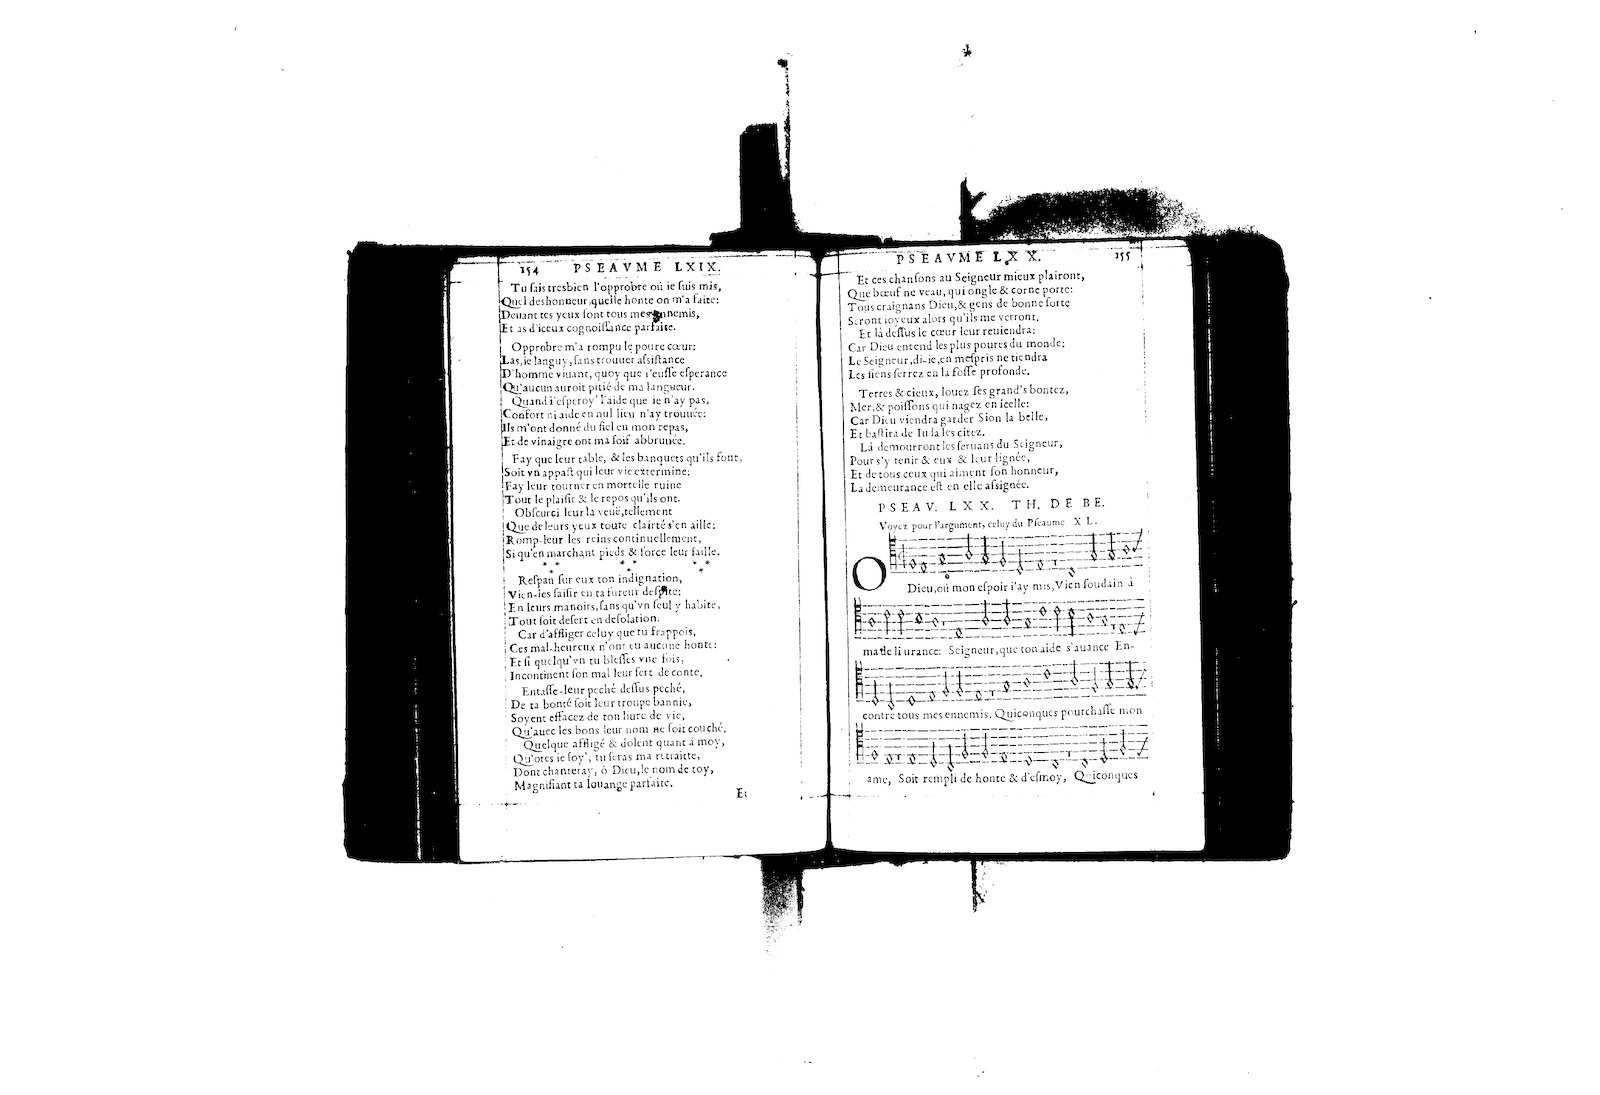 154 PSEAVME LXIX.
Tu ſais tresbien l'opprobre où ie ſuis mis,
Quel deshonneur, quelle honte on m'a faite:
Deuant tes yeux ſont tous mes ennemis,
Et as d'iceux cognoiſſance parfaite.
Opprobre m'a rompu le poure cœur:
Las, ie languy, ſans trouuer aſsiſtance
D'homme viuant, quoy que i'euſſe eſperance
Qu'aucun auroit pitié de ma langueur.
Quand i'eſperoy' l'aide que ie n'ay pas,
Confort ni aide en nul lieu n'ay trouuée:
Ils m'ont donné du fiel en mon repas,
Et de vinaigre ont ma ſoif abbruuée.
Fay que leur table, & les banquets qu'ils font,
Soit vn appaſt qui leur vie extermine:
Fay leur tourner en mortelle ruine
Tout le plaiſir & le repos qu'ils ont.
Obſcurci leur la veuë, tellement
Que de leurs yeux toute clairté s'en aille:
Romp-leur les reins continuellement,
Si qu'en marchant pieds & force leur faille.
Reſpan ſur eux ton indignation,
Vien-les ſaiſir en ta fureur deſpite:
En leurs manoirs, ſans qu'vn ſeul y habite,
Tout ſoit deſert en deſolation.
Car d'affliger celuy que tu frappois,
Ces mal-heureux n'ont eu aucune honte:
Et ſi quelqu'vn tu bleſſes vne fois,
Incontinent ſon mal leur ſert de conte.
Entaſſe-leur peché deſſus peché,
De ta bonté ſoit leur troupe bannie,
Soyent effacez de ton liure de vie,
Qu'auec les bons leur nom ne ſoit couché.
Quelque affligé & dolent quant à moy,
Qu'ores ie ſoy', tu ſeras ma retraitte,
Dont chanteray, ô Dieu, le nom de toy,
Magnifiant ta louange parfaite.
Et
PSEAVME LXX. 155
Et ces chanſons au Seigneur mieux plairont,
Que bœuf ne veau, qui ongle & corne porte:
Tous craignans Dieu, & gens de bonne ſorte
Seront ioyeux alors qu'ils me verront.
Et là deſſus le cœur leur reuiendra:
Car Dieu entend les plus poures du monde:
Le Seigneur, di-ie, en meſpris ne tiendra
Les ſiens ſerrez en la foſſe profonde.
Terres & cieux, louez ſes grand's bontez,
Mer, & poiſſons qui nagez en icelle:
Car Dieu viendra garder Sion la belle,
Et baſtira de Iuda les citez.
Là demourront les ſeruans du Seigneur,
Pour s'y tenir & eux & leur lignée,
Et de tous ceux qui aiment ſon honneur,
La demeurance eſt en elle aſsignée.
PSEAV. LXX. TH. DE BE.
Voyez pour l'argument, celuy du Pſeaume XL.
O Dieu, où mon eſpoir i'ay mis, Vien ſoudain à
ma deliurance: Seigneur, que ton aide s'auance En-
contre tous mes ennemis. Quiconques pourchaſſe mon
ame, Soit rempli de honte & d'eſmoy, Quiconques